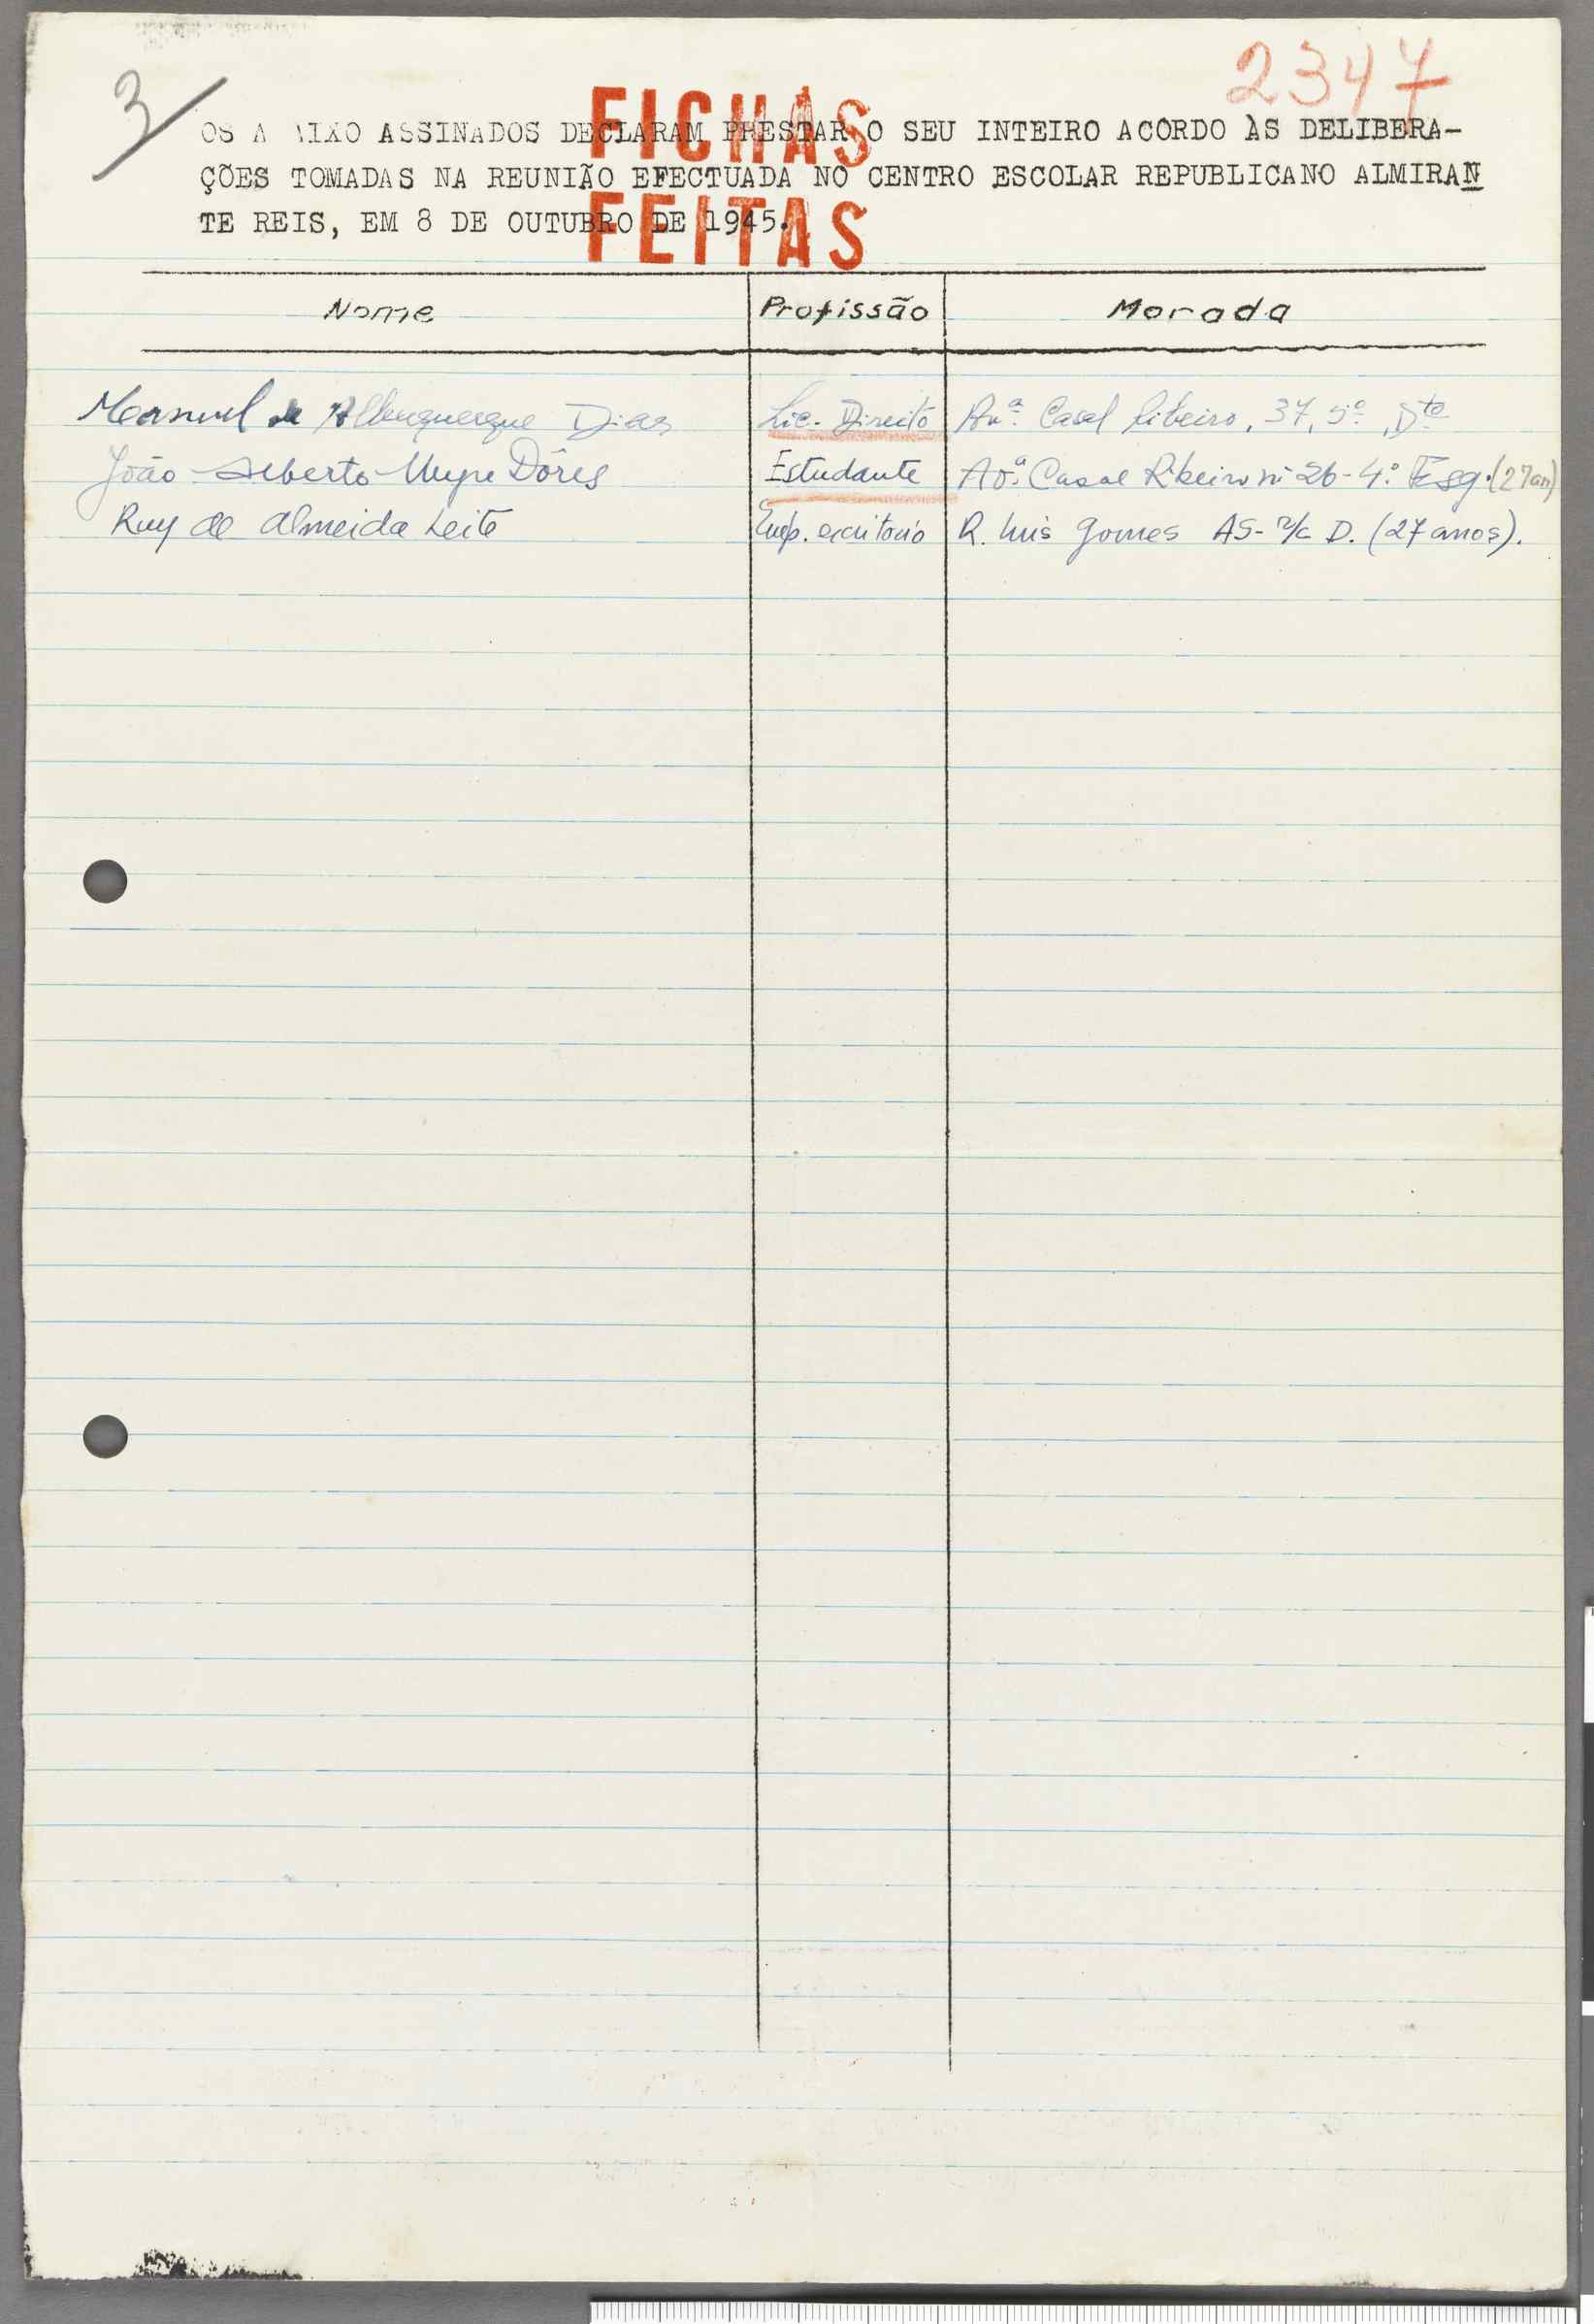 3
2347
FICHAS
OS A AIXO ASSINADOS DECLARAM PRESTAR O SEU INTEIRO ACORDO ÀS DELIBERA-
ÇÕES TOMADAS NA REUNIÃO EFECTUADA NO CENTRO ESCOLAR REPUBLICANO ALMIRAN
TE REIS, EM 8 DE OUTUBRO DE 1945.
FEITAS
Nome Profissão Morada
Manuel de Albuquerque Dias Lic. Direito Avª. Casal Ribeiro, 37, 5º, Dto
João Alberto Dôres Estudante Avª. Casal Ribeiro nº 26-4º. Esq. (27 an)
Ruy de Almeida Leite Emp. escritorio R. Luis Gomes AS- r/c D. (27 anos).